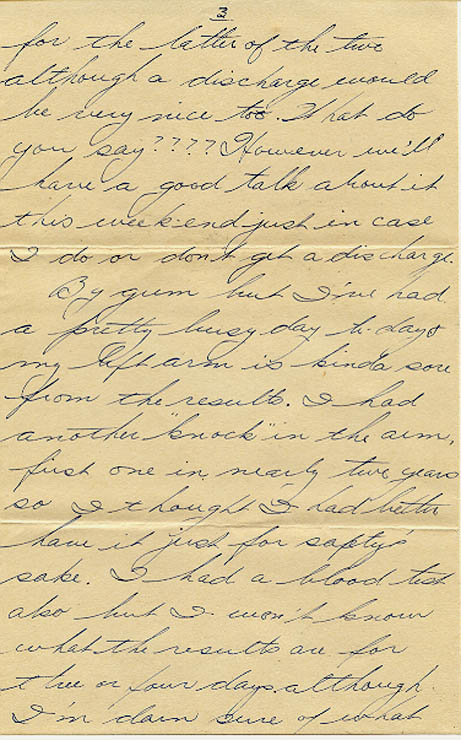 3
for the latter of the two
although a discharge would
be very nice too. What do
you say???? However we'll
have a good talk about it
this week-end just in case
I do or don't get a discharge.
By gum but I've had
a pretty busy day to-day &
my left arm is kinda sore
from the results. I had
another "knock" in the arm,
first one in nearly two years
so I thought I had better
have it just for safty's
sake. I had a blood test
also but I won't know
what the results are for
three or four days although
I'm darn sure of what